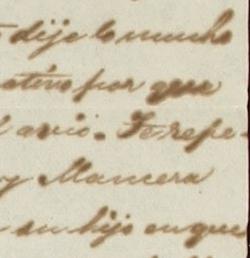 dije lo mucho
ativo por que
l avió. Te repe
y Mancera
su hijo en que